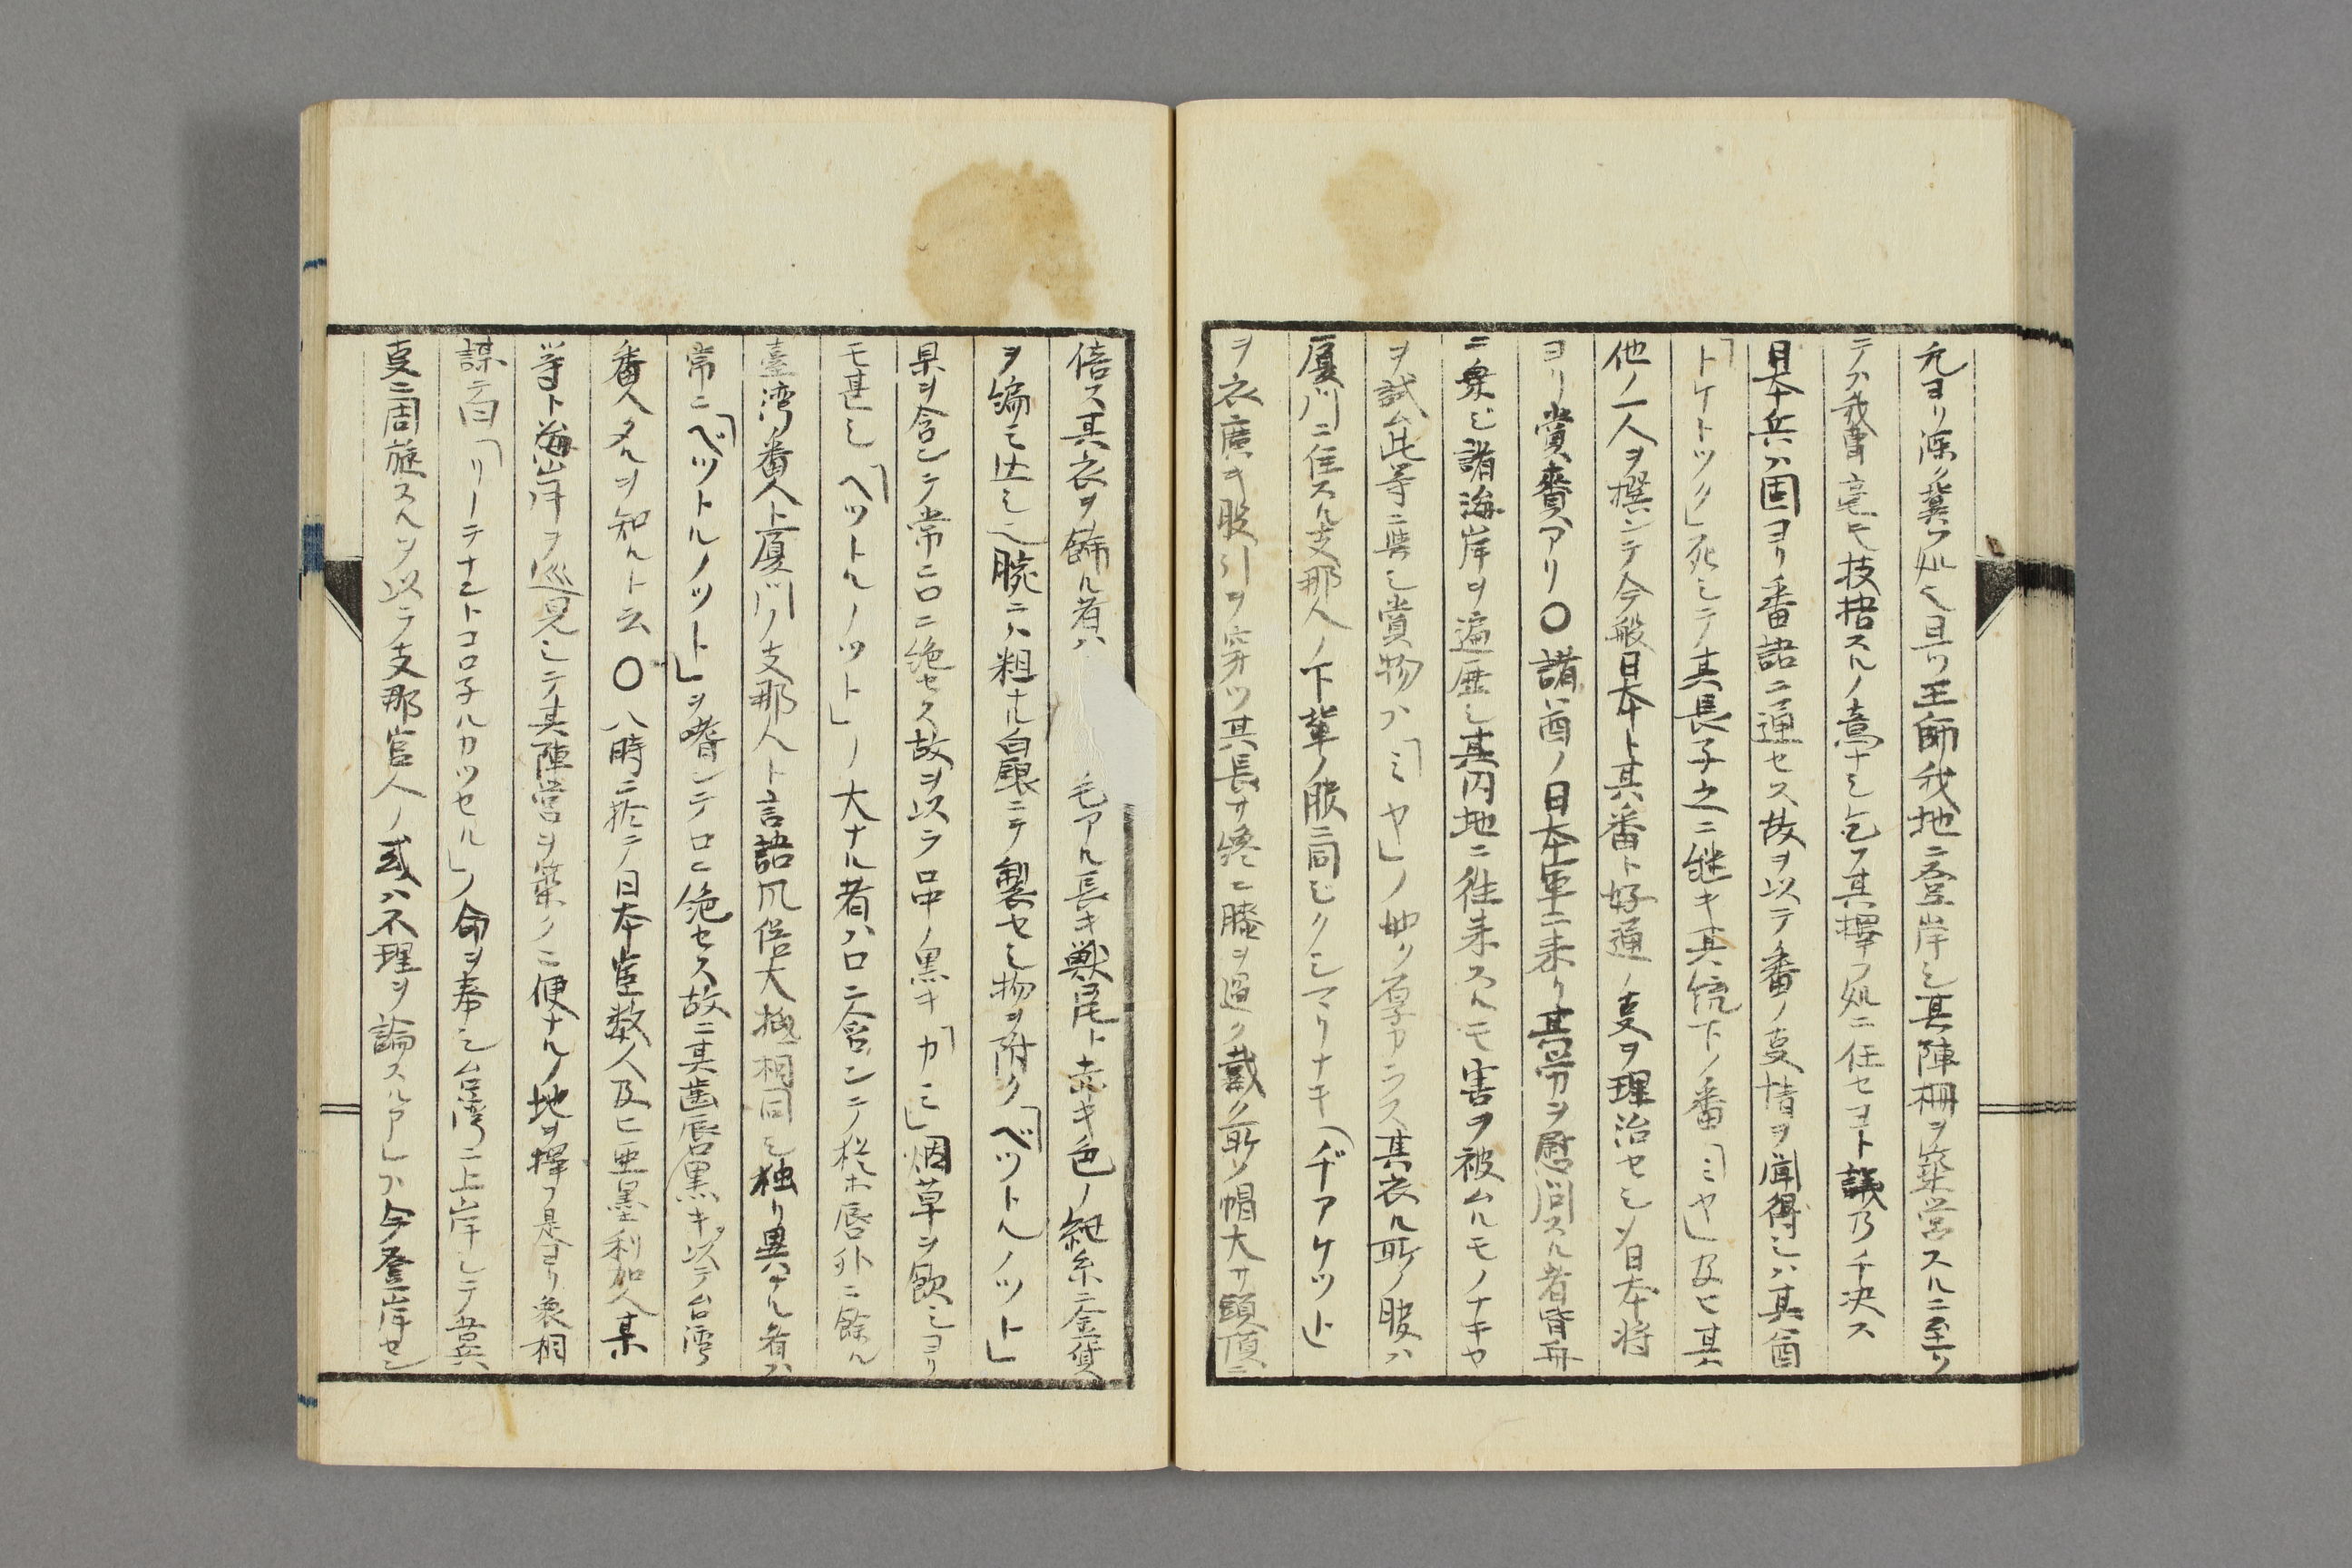 元ヨリ深ク冀フ処ミ且ツ王師我地ニ登岸シ其陣柵ヲ築営スルニ至リ
テハ我曹毫モ技捂スルノ意ナシ乞フ其擇フ処ニ任セヨト議乃チ決ス
日本兵ハ固ヨリ番語ニ通セス故ヲ以テ番ノ事情ヲ聞得シハ其酋
「トケトツク」死シテ其長子之ニ継キ其統下ノ番「ミヤ」及ヒ其
他ノ一人ヲ撰ンテ今般日本ト其番ト好通ノ事ヲ理治セシメ日本将
ヨリ賞賚アリ〇諸酋ノ日本軍ニ来リ其労ヲ慰問スル者皆舟
ニ乗シ諸海岸ヲ遍歴シ其内地ニ往来スルモ害ヲ被ムルモノナキヤ
ヲ試ム此等ニ與シ賞物ハ「ミヤ」ノ如ク厚カラス其衣ル所ノ服ハ
厦川ニ住スル支那人ノ下輩ノ服ニ同シクシマリナキ「ヂアケツト」
ヲ衣廣キ股引ヲ穿ツ其長サ終ニ膝ヲ過ク戴ク所ノ帽大サ頭頂ニ
倍ス其衣ヲ飾ル者ハ 毛アル長キ獣尾ト赤キ色ノ紐糸ニ金貨
ヲ編ミ止シ之腕ニハ粗ナル白銀ニテ製セシ物ヲ附ク「ベツトルノツト」
果ヲ含ンテ常ニ口ニ絶セス故ヲ以ラ口中ノ黒キ「カミ」烟草ヲ飲シヨリ
モ甚シ「ヘツトルノツト」ノ大ナル者ハ口ニ含ンテ猶ホ唇外ニ餘ル
臺湾番人ト厦川ノ支那人ト言語風俗大概相同シ独リ異ナル者ハ
常ニ「ベツトルノツト」ヲ嗜ンテ口ニ絶セス故ニ其歯唇黒キヲ以テ台湾
番人タルヲ知ルト云 〇八時ニ於テ日本官数人及ヒ亜墨利加人某
等ト海岸ヲ巡見シテ其陣営ヲ築クニ便ナルノ地ヲ擇フ是ヨリ象相
謀テ曰「リーテナントコロ子ルカツセル」ノ命ヲ奉シ台湾ニ上岸シテ吾兵
事ニ周旋スルヲ以テ支那官人ノ或ハ不理ヲ論スルアレハ今登岸セシ